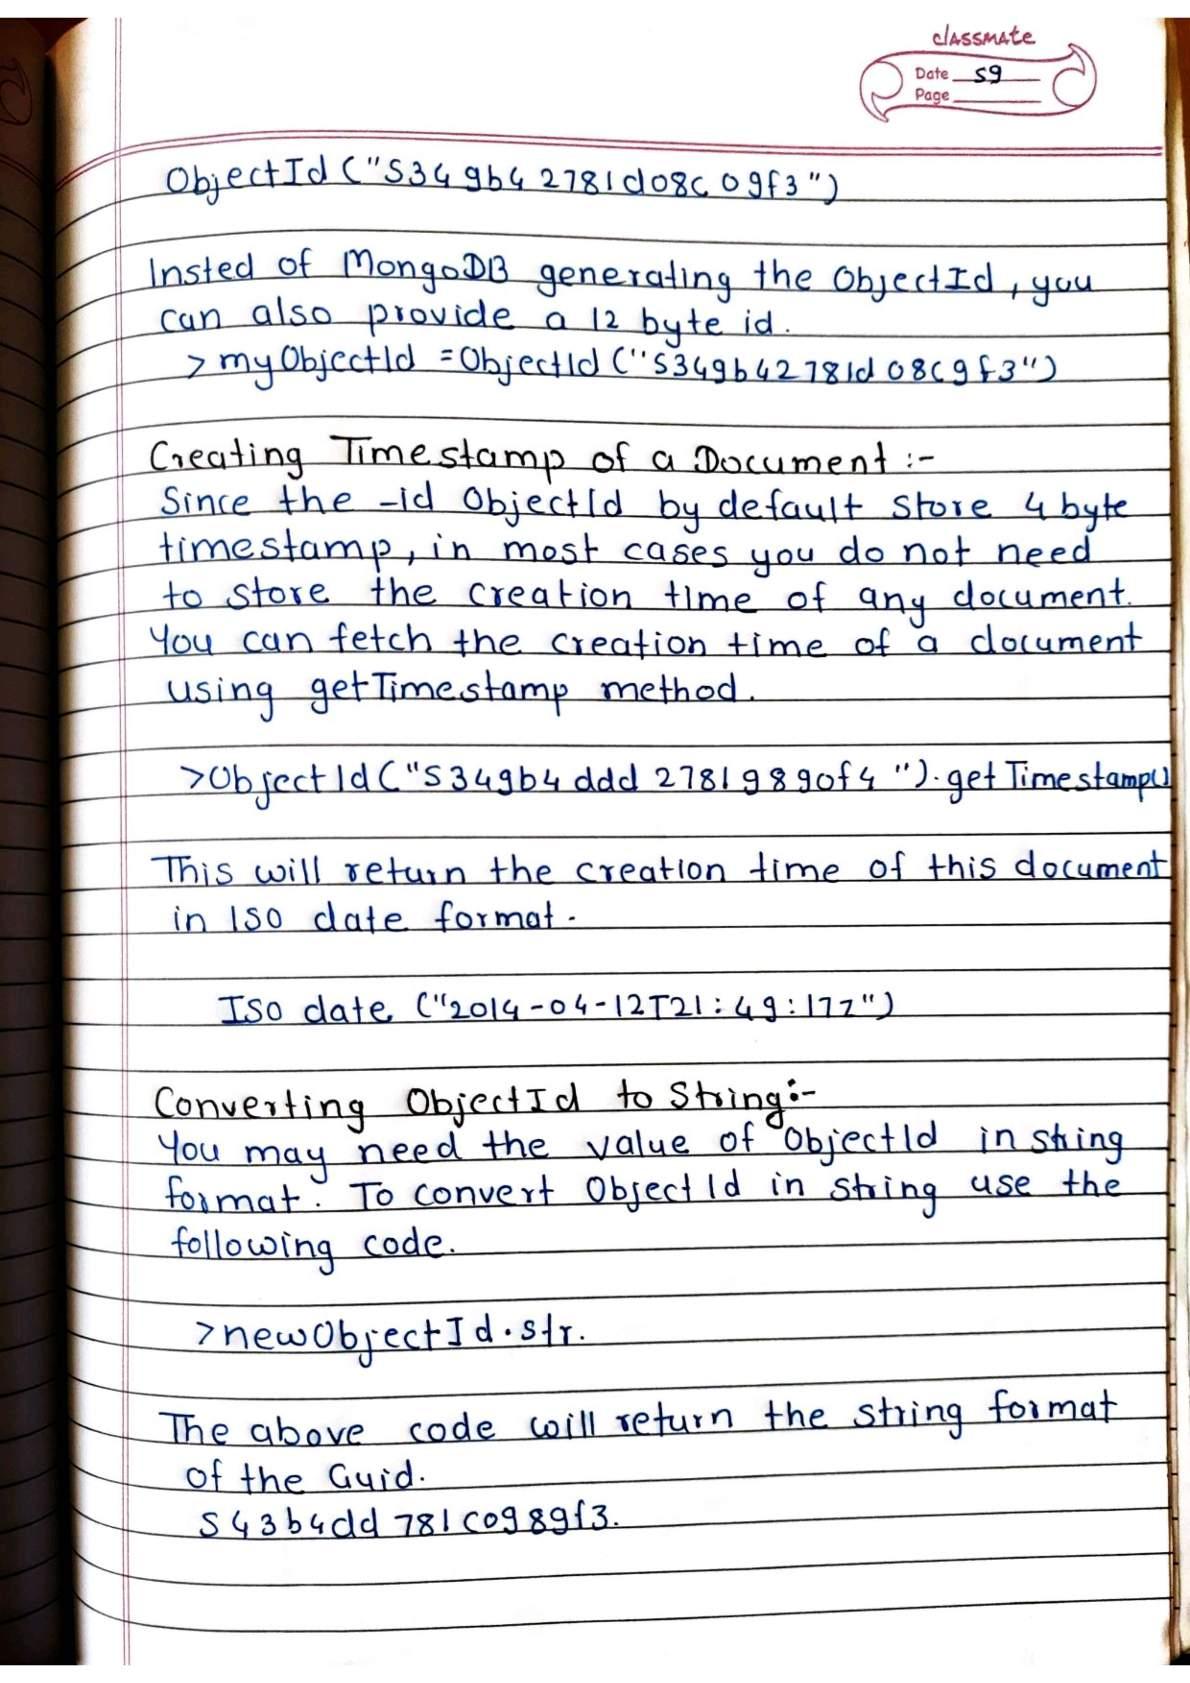 classmate
Date 59
Page
ObjectId ("5349b42781d08c09f3")
Insted of MongoDB generating the ObjectId, you
can also provide a 12 byte id.
> myObjectId = ObjectId ("5349b42781d08c9f3")
Creating Timestamp of a Document :-
Since the -id ObjectId by default store 4 byte
timestamp, in most cases you do not need
to store the creation time of any document.
You can fetch the creation time of a document
using getTimestamp method.
>ObjectId ("5349b4ddd2781989of4").getTimestamp()
This will return the creation time of this document
in ISO date format.
ISO date ("2014-04-12T21:49:17Z")
Converting ObjectId to String:-
You may need the value of ObjectId in string
format. To convert ObjectId in string use the
following code.
>newObjectId.str.
The above code will return the string format
of the Guid.
543b4dd781c0989f3.